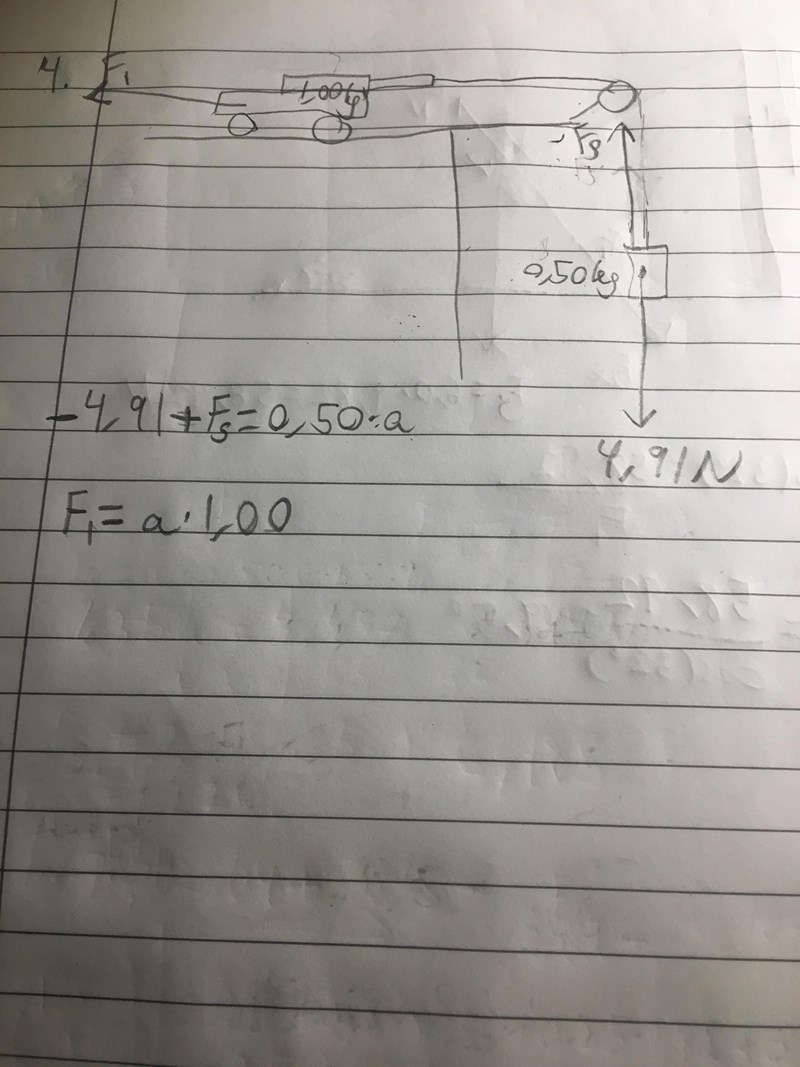 4. F₁
1,00kg
-Fs
0,50kg
-4,91+Fs=0,50·a
4,91N
F₁=a·1,00